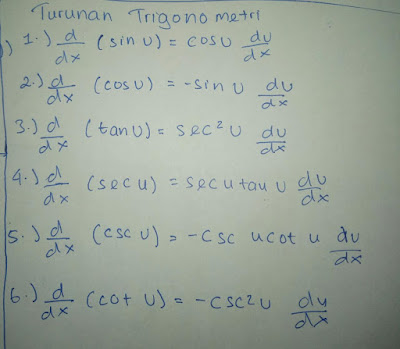 Turunan Trigonometri
1.) d/dx (sin u) = cos u du/dx
2.) d/dx (cos u) = -sin u du/dx
3.) d/dx (tan u) = sec² u du/dx
4.) d/dx (sec u) = sec u tau u du/dx
5.) d/dx (csc u) = -csc u cot u du/dx
6.) d/dx (cot u) = -csc² u du/dx